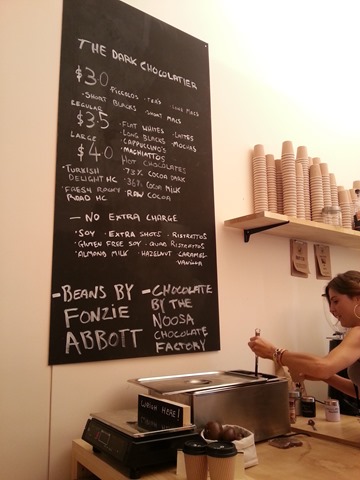 THE DARK CHOCOLATIER
$3.0
PICCOLOS · TEA'S · LONG MACS
· SHORT BLACKS · SHORT MACS
REGULAR
$3.5
· FLAT WHITES · LATTES
· LONG BLACKS · MOCHAS
· CAPPUCCINO'S
LARGE
$4.0
· MACHIATTOS
HOT CHOCOLATES
· TURKISH DELIGHT HC
· 73% COCOA DARK
· 36% COCOA MILK
· FRESH ROCKY ROAD HC
· RAW COCOA
— NO EXTRA CHARGE
· SOY · EXTRA SHOTS · RISTRETTOS
· GLUTEN FREE SOY · QUAD RISTRETTOS
· ALMOND MILK · HAZELNUT CARAMEL
VANILLA
- BEANS BY
FONZIE
ABBOTT
- CHOCOLATE
BY THE
NOOSA
CHOCOLATE
FACTORY
HERE!